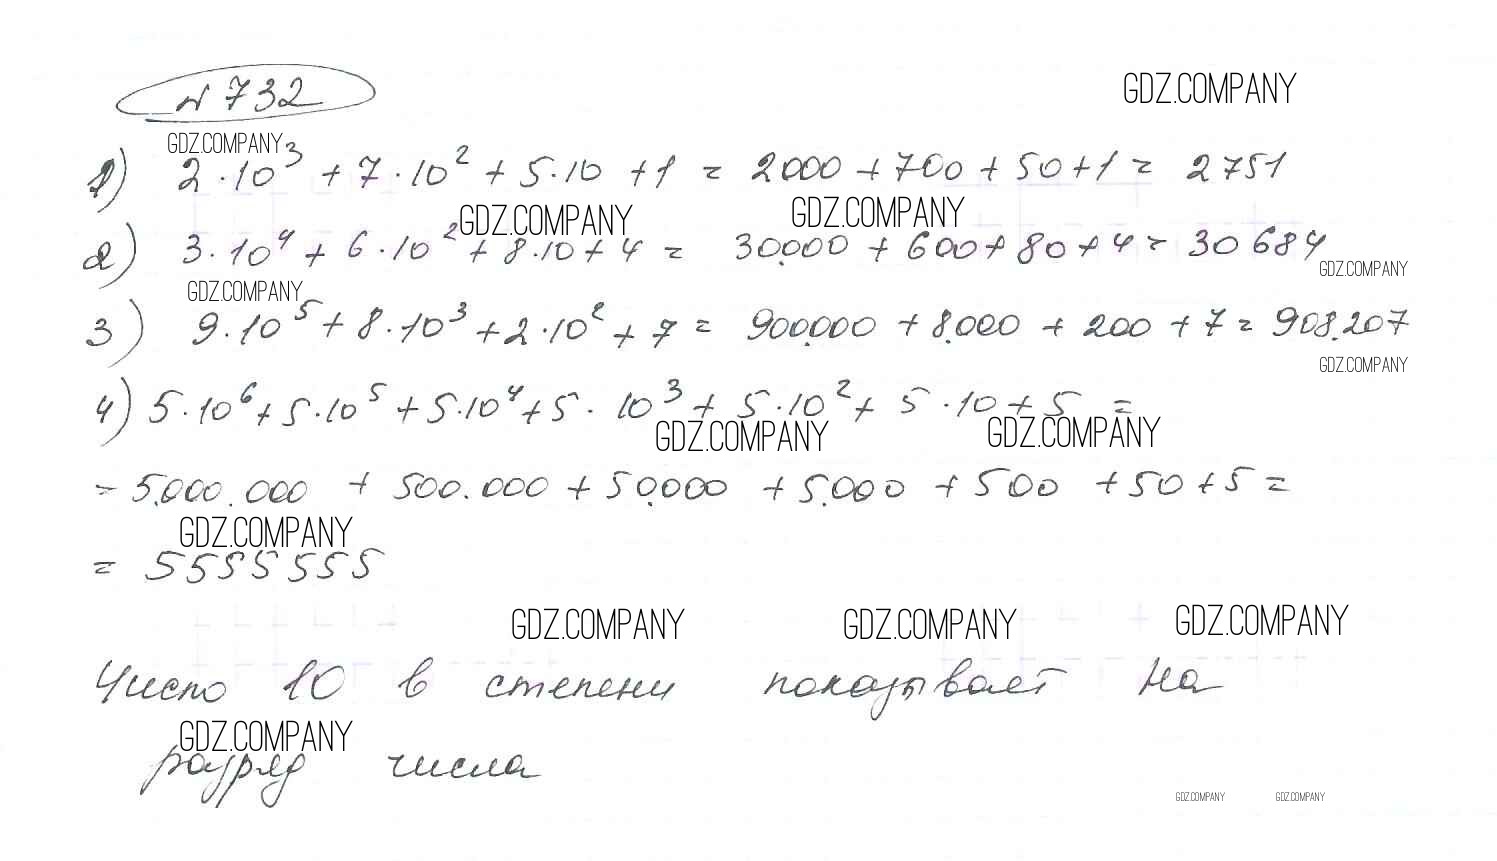 № 732
GDZ.COMPANY
GDZ.COMPANY
1) 2·10³ + 7·10² + 5·10 + 1 = 2000 + 700 + 50 + 1 = 2751
GDZ.COMPANY GDZ.COMPANY
2) 3·10⁴ + 6·10² + 8·10 + 4 = 30.000 + 600 + 80 + 4 = 30 684
GDZ.COMPANY
GDZ.COMPANY
3) 9·10⁵ + 8·10³ + 2·10² + 7 = 900.000 + 8.000 + 200 + 7 = 908.207
GDZ.COMPANY
4) 5·10⁶ + 5·10⁵ + 5·10⁴ + 5·10³ + 5·10² + 5·10 + 5 =
GDZ.COMPANY GDZ.COMPANY
= 5.000.000 + 500.000 + 50.000 + 5.000 + 500 + 50 + 5 =
GDZ.COMPANY
= 5555555
GDZ.COMPANY GDZ.COMPANY GDZ.COMPANY
Число 10 в степени показывает на
GDZ.COMPANY
разряд числа
GDZ.COMPANY GDZ.COMPANY